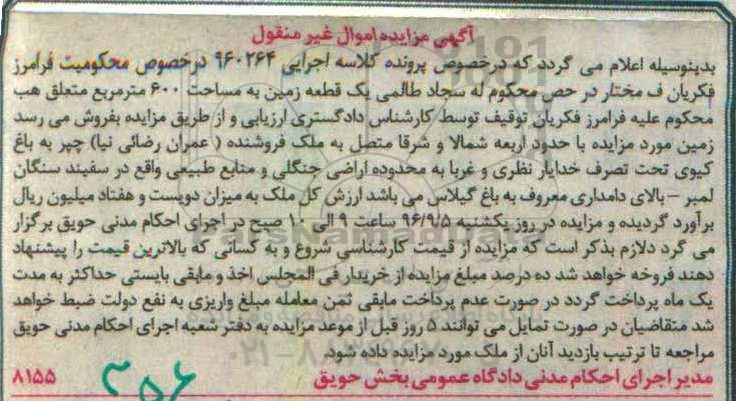 آگهی مزایده اموال غیر منقول
بدینوسیله اعلام می گردد که درخصوص پرونده کلاسه اجرایی ۹۶۰۲۶۴ درخصوص محکومیت فرامرز
فکریان ف مختار در حص محکوم له سجاد طالمی یک قطعه زمین به مساحت ۶۰۰ مترمربع متعلق هب
محکوم علیه فرامرز فکریان توقیف توسط کارشناس دادگستری ارزیابی و از طریق مزایده بفروش می رسد
زمین مورد مزایده با حدود اربعه شمالا و شرقا متصل به ملک فروشنده ( عمران رضائی نیا) چپر به باغ
کیوی تحت تصرف خدایار نظری و غربا به محدوده اراضی جنگلی و منابع طبیعی واقع در سفیند سنگان
لمبر – بالای دامداری معروف به باغ گیلاس می باشد ارزش کل ملک به میزان دویست و هفتاد میلیون ریال
برآورد گردیده و مزایده در روز یکشنبه ۹۶/۹/۵ ساعت ۹ الی ۱۰ صبح در اجرای احکام مدنی حویق برگزار
می گرد دلازم بذکر است که مزایده از قیمت کارشناسی شروع و به کسانی که بالاترین قیمت را پیشنهاد
دهند فروخه خواهد شد ده درصد مبلغ مزایده از خریدار فی المجلس اخذ و مابقی بایستی حداکثر به مدت
یک ماه پرداخت گردد در صورت عدم پرداخت مابقی ثمن معامله مبلغ واریزی به نفع دولت ضبط خواهد
شد متقاضیان در صورت تمایل می توانند ۵ روز قبل از موعد مزایده به دفتر شعبه اجرای احکام مدنی حویق
مراجعه تا ترتیب بازدید آنان از ملک مورد مزایده داده شود.
مدیر اجرای احکام مدنی دادگاه عمومی بخش حویق ۸۱۵۵
۳۵۶